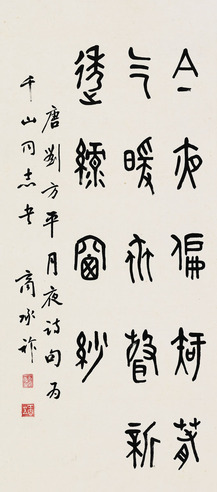 今夜偏知春
气暖虫聲新
透綠窗紗
唐劉方平月夜詩句為
千山同志書 商承祚